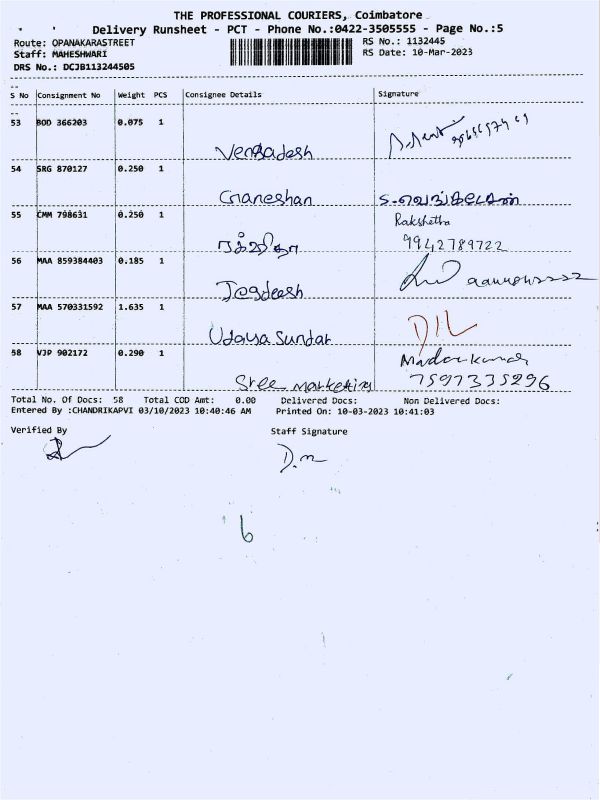 THE PROFESSIONAL COURIERS, Coimbatore
Delivery Runsheet - PCT - Phone No.:0422-3505555 - Page No.:5
Route: OPANAKARASTREET
RS No.: 1132445
Staff: MAHESHWARI
RS Date: 10-Mar-2023
DRS No.: DCJB113244505
S No Consignment No Weight PCS Consignee Details Signature
53 BOD 366203 0.075 1
Venkadesh
54 SRG 870127 0.250 1
Gnaneshan
55 CMM 798631 0.250 1 Rakshetha
ரக்ஷிதா 9942789722
56 MAA 859384403 0.185 1
Jegdeesh
57 MAA 570331592 1.635 1
Udaya Sundar DIL
58 VJP 902172 0.290 1
Sree marketing 7597335296
Total No. Of Docs: 58 Total COD Amt: 0.00 Delivered Docs: Non Delivered Docs:
Entered By :CHANDRIKAPVI 03/10/2023 10:40:46 AM Printed On: 10-03-2023 10:41:03
Verified By Staff Signature
D.m
6